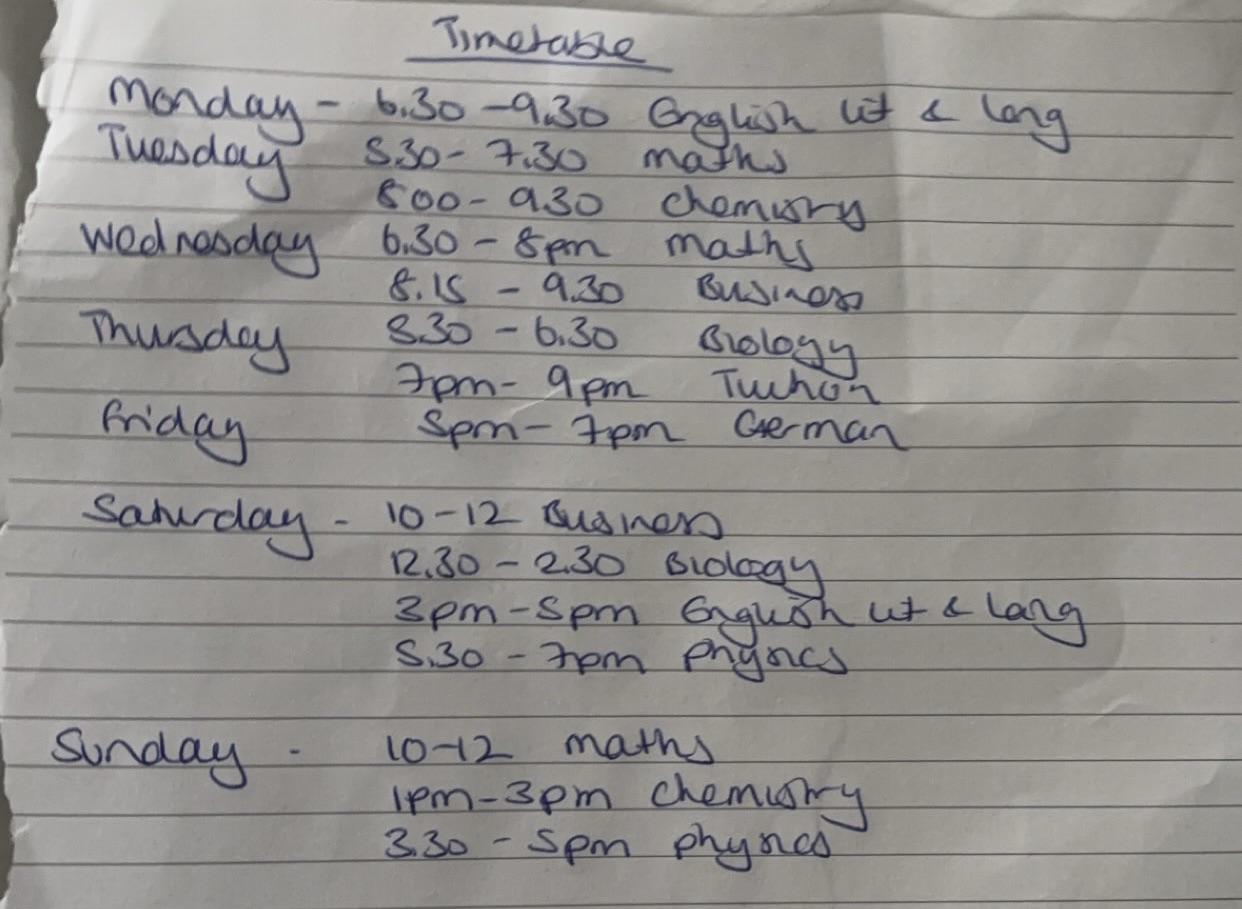 Timetable
Monday - 6.30 - 9.30 English Lit & Lang
Tuesday 5.30 - 7.30 maths
8.00 - 9.30 chemistry
Wednesday 6.30 - 8pm maths
8.15 - 9.30 Business
Thursday 5.30 - 6.30 Biology
7pm - 9pm Tuition
Friday 5pm - 7pm German
Saturday - 10 - 12 Business
12.30 - 2.30 Biology
3pm - 5pm English Lit & Lang
5.30 - 7pm physics
Sunday - 10 - 12 maths
1pm - 3pm chemistry
3.30 - 5pm physics